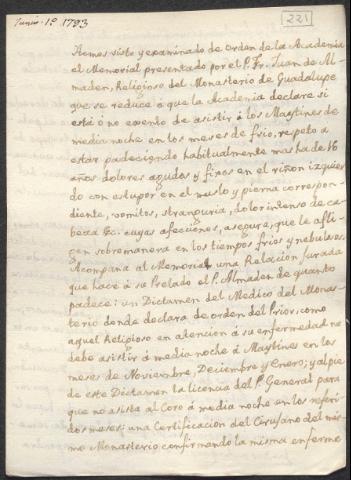 Junio 1º 1793
221
Hemos visto y examinado de orden de la Academia
el Memorial presentado por el P. Fr. Juan de Al-
maden, Religioso del Monasterio de Guadalupe
que se reduce á que la Academia declare si
está ó no exento de asistir á los Maytines de
media noche en los meses de frio, respeto a
estár padeciendo habitualmente mas ha de 16
años dolores agudos y fixos en el riñon izquier
do con estupor en el muslo y pierna correspon-
diente, vomitos, stranguria, dolor intenso de ca-
beza &c. cuyas afecciones, asegura, que le afli-
gen sobremanera en los tiempos frios y nebulosos.
Acompaña al Memorial una Relación jurada
que hace á su Prelado el P. Almaden de quanto
padece: un Dictamen del Medico del Monas-
terio donde declara de orden del Prior, como
aquel Religioso en atencion á su enfermedad no
debe asistir á media noche á Maytines en los
meses de Noviembre, Deciembre y Enero; y al pie
de este Dictamen la licencia del P. General para
que no asista al Coro á media noche en los referi-
dos meses: una Certificacion del Cirujano del mis-
mo Monasterio confirmando la misma enferme